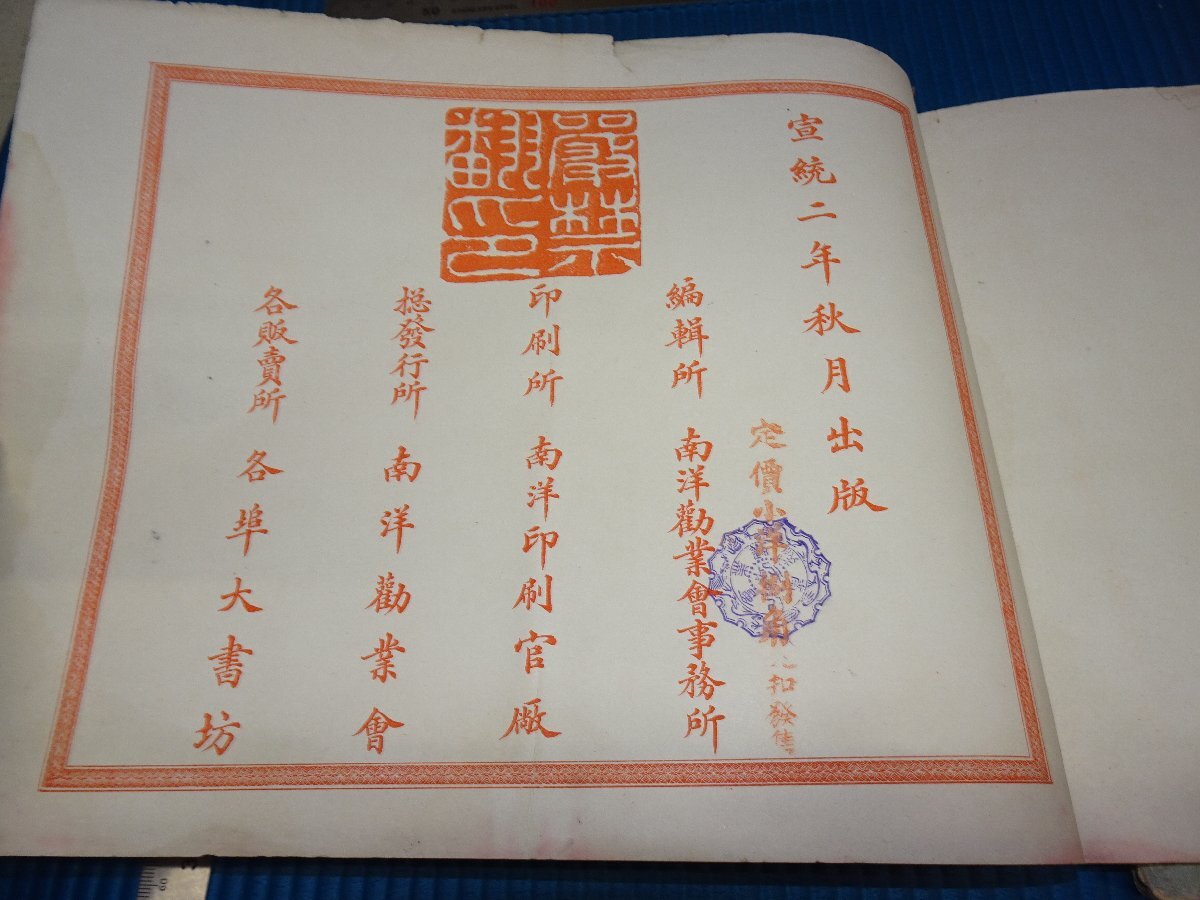 宣統二年秋月出版
定價小洋捌角
扣發售
編輯所 南洋勸業會事務所
嚴禁翻印
印刷所 南洋印刷官廠
摠發行所 南洋勸業會
各販賣所 各埠大書坊